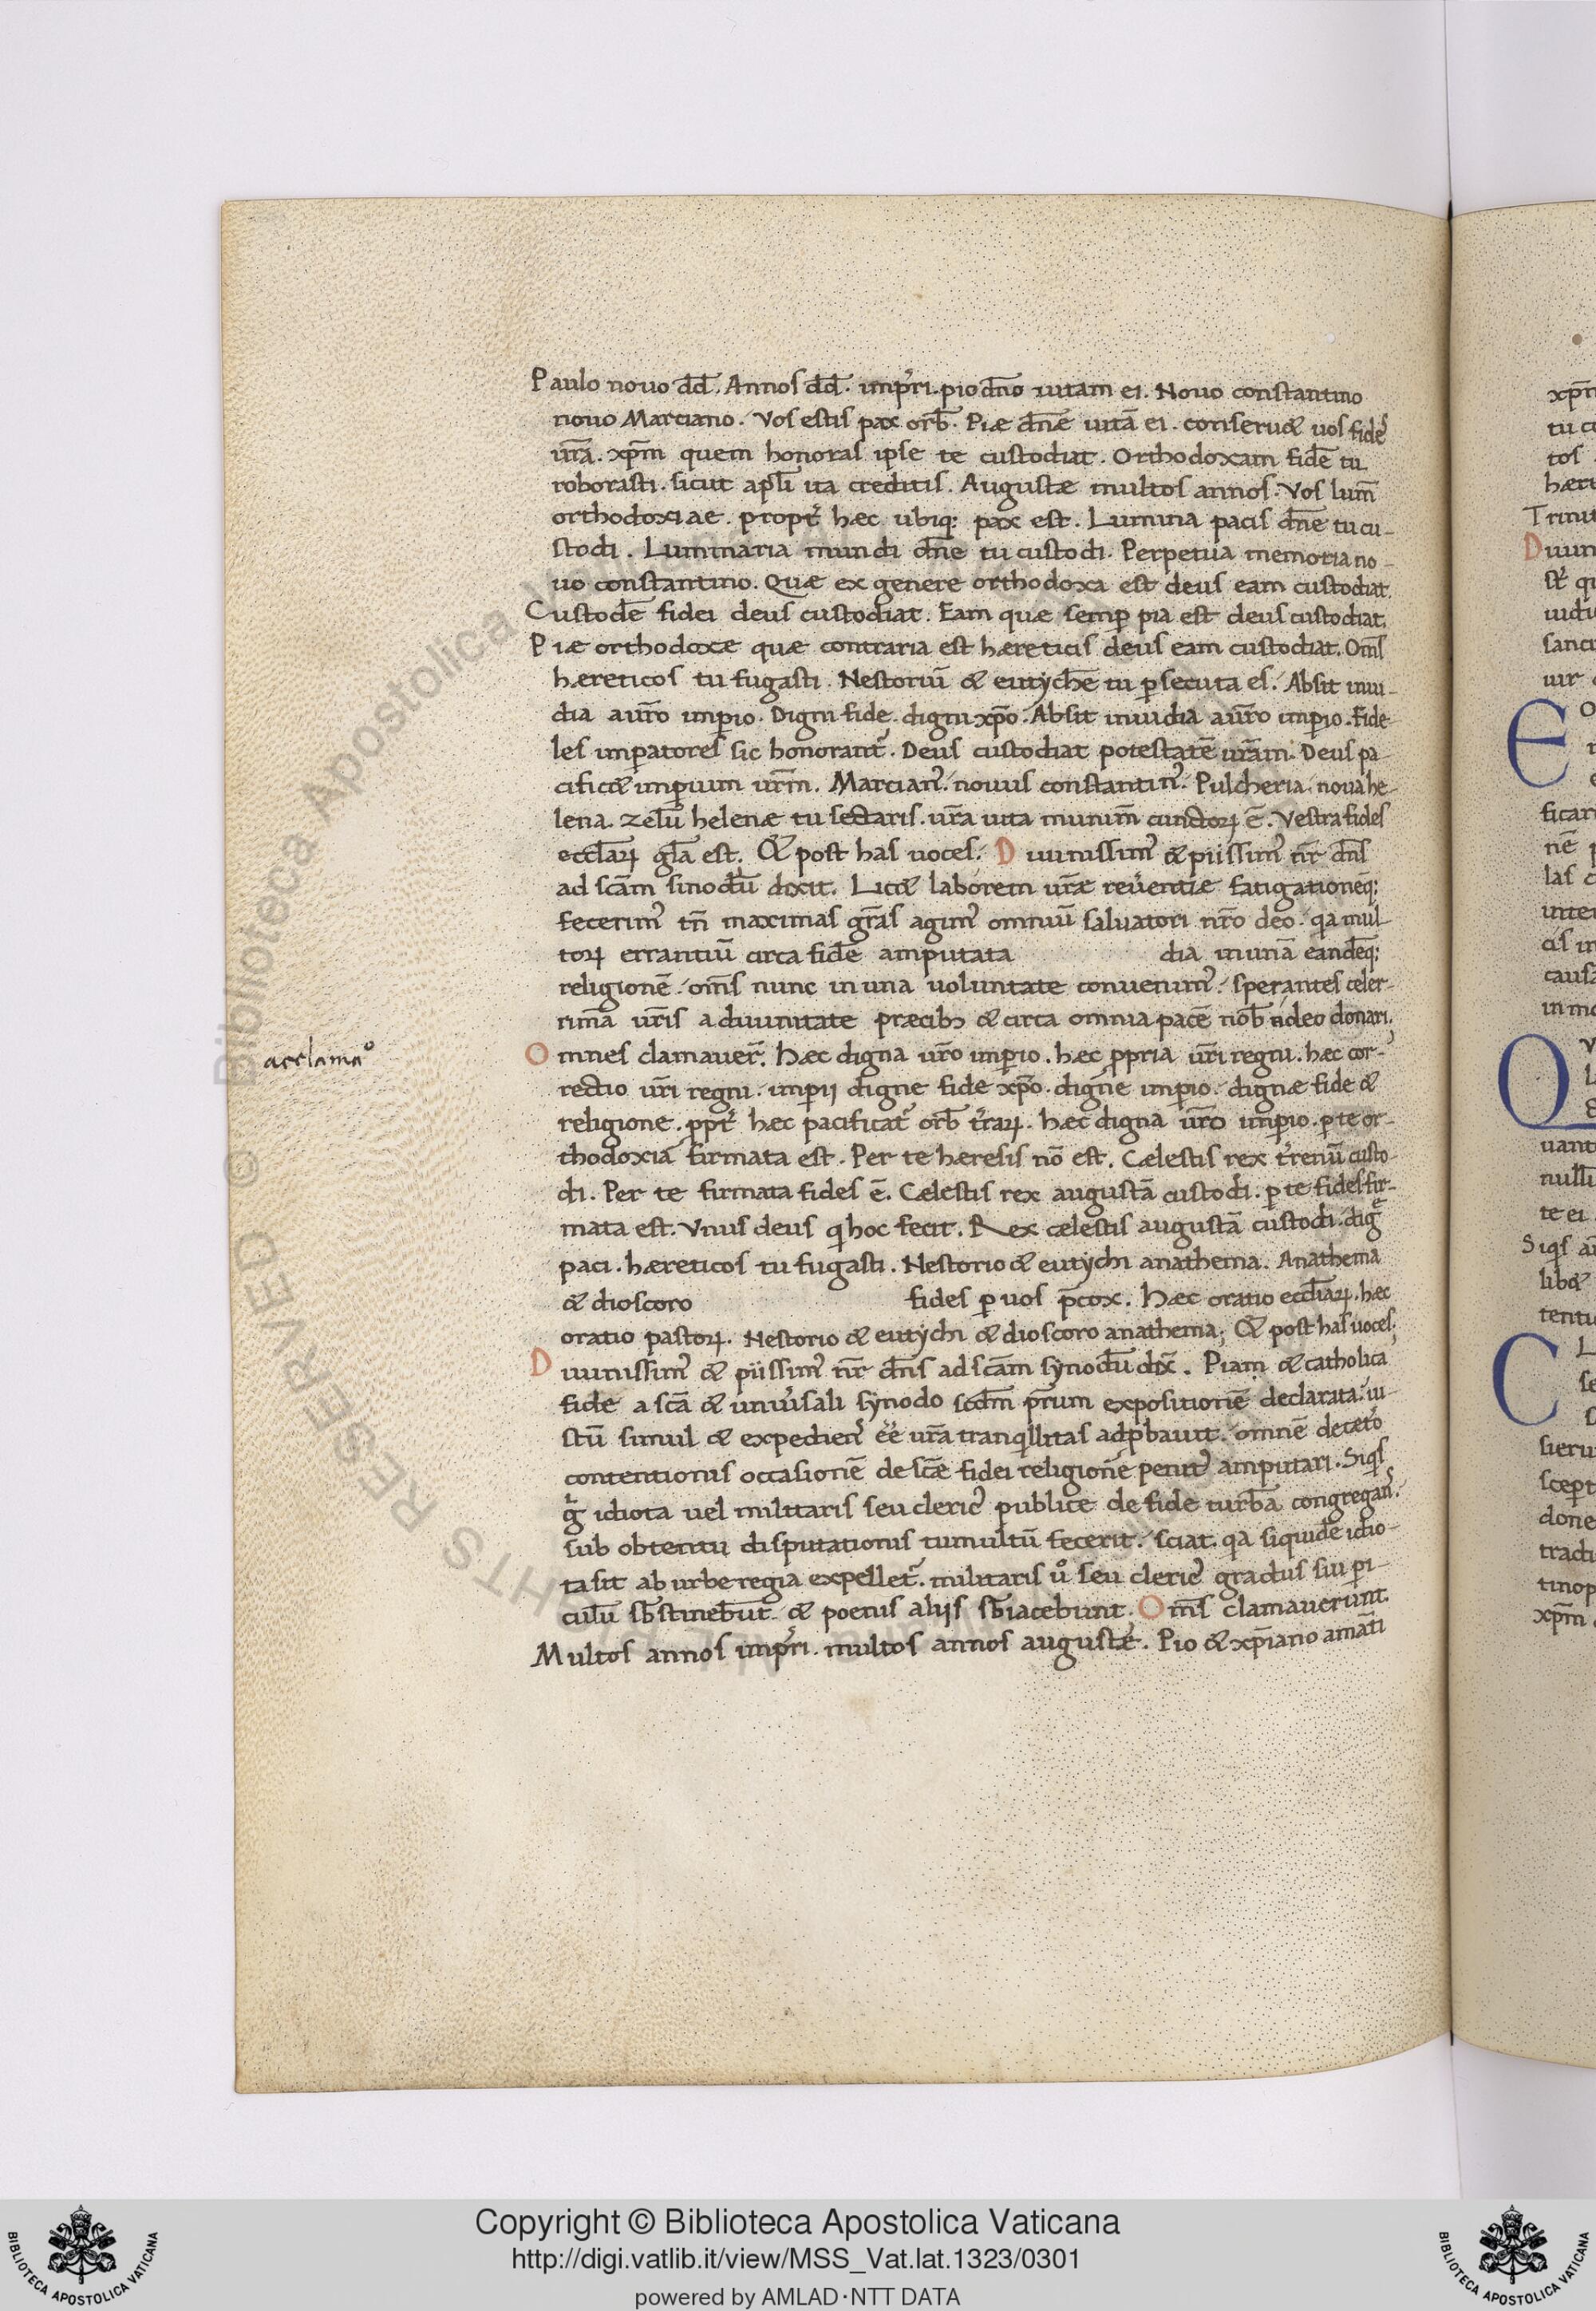 Paulo nouo dd̄. Annos dd̄. imp̄ri. pio dn̄o uitam ei. Nouo constantino
nouo Marciano. Vos estis pax orb̄. Piæ dn̄e uitā ei. conseruet uos fides
ur̄a. xp̄m quem honoras ipse te custodiat. Orthodoxam fidē tu
roborasti. sicut apl̄i ita creditis. Augustæ multos annos. Vos lum̄
orthodoxiae. propt̄ hæc ubiq: pax est. Lumina pacis dn̄e tu cu-
stodi. Luminaria mundi dn̄e tu custodi. Perpetua memoria no-
uo constantino. Quæ ex genere orthodoxa est deus eam custodiat.
Custodē fidei deus custodiat. Eam quæ semp̄ pia est deus custodiat.
Piæ orthodoxe quæ contraria est hæreticis deus eam custodiat. Om̄s
hæreticos tu fugasti. Nestoriū et eutychē tu p̄secuta es. Absit inui-
dia a ur̄o imp̄io. Digni fide. digni xp̄o. Absit inuidia a ur̄o imp̄io. Fide-
les imp̄atores sic honorant᷑. Deus custodiat potestatē ur̄am. Deus pa-
cificet imp̄ium ur̄m. Marcian᷒. nouus constantin᷒. Pulcheria. noua he-
lena. zelū helenæ tu sectaris. ur̄a uita munim̄ cunctoꝝ ē. Vestra fides
eccl̄aꝝ gl̄a est. Et post has uoces. Diuinissim᷒ et piissim᷒ nr̄ dn̄s
ad sc̄am sinodū dixit. Licet laborem ur̄æ reuerentiæ fatigationēq:
fecerim᷒ tn̄ maximas gr̄as agim᷒ omniū saluatori nr̄o deo. qa mul-
toꝝ errantiū circa fidē amputata dia in unā eandēq:
religionē. om̄s nunc in una uoluntate conuenim᷒. sperantes celer-
rimā ur̄is a diuinitate præcib᷒ et circa omnia pacē nob̄ a deo donari.
acclama°
Omnes clamauer̄. Hæc digna ur̄o imp̄io. hæc ꝓpria ur̄i regni. hæc cor-
rectio ur̄i regni. imp̄ii digne fide xp̄o. digne imp̄io. dignæ fide et
religione. ꝓpt̄ hæc pacificat᷑ orb̄ t̄raꝝ. hæc digna ur̄o imp̄io. p̄ te or-
thodoxia firmata est. Per te heresis nō est. Cælestis rex t̄renū custo-
di. Per te firmata fides ē. Cælestis rex augustā custodi. p̄ te fides fir-
mata est. Vnus deus q hoc fecit. Rex cælestis augustā custodi. digē
paci. hæreticos tu fugasti. Nestorio et eutychi anathema. Anathema
et dioscoro fides p̄ uos p̄cox. Hæc oratio eccl̄iaꝝ. hæc
oratio pastoꝝ. Nestorio et eutychi et dioscoro anathema; Et post has uoces;
Diuinissim᷒ et piissim᷒ nr̄ dn̄s ad sc̄am synodū dix̄. Piam et catholica
fide a sc̄a et uniu᷒sali synodo scd̄m pr̄um expositionē declarata. iu-
stū simul et expedien᷒ eē ur̄a tranqillitas adp̄bauit. omnē deceto
contentionis occasionē de sc̄æ fidei religione penit᷒ amputari. Siqs
g᷑ idiota uel militaris seu cleric᷒ publice de fide turbā congregans.
sub obtentu disputationis tumultū fecerit. sciat. qa siquidē idio-
ta sit ab urbe regia expellet᷑. militaris uo seu cleric᷒ gradus sui pi-
culū sb̄stinebūt. et poenis aliis sb̄iacebunt. Om̄s clamauerunt.
Multos annos imp̄ri. multos annos auguste. Pio et xp̄iano amāti
Copyright © Biblioteca Apostolica Vaticana
http://digi.vatlib.it/view/MSS_Vat.lat.1323/0301
powered by AMLAD·NTT DATA